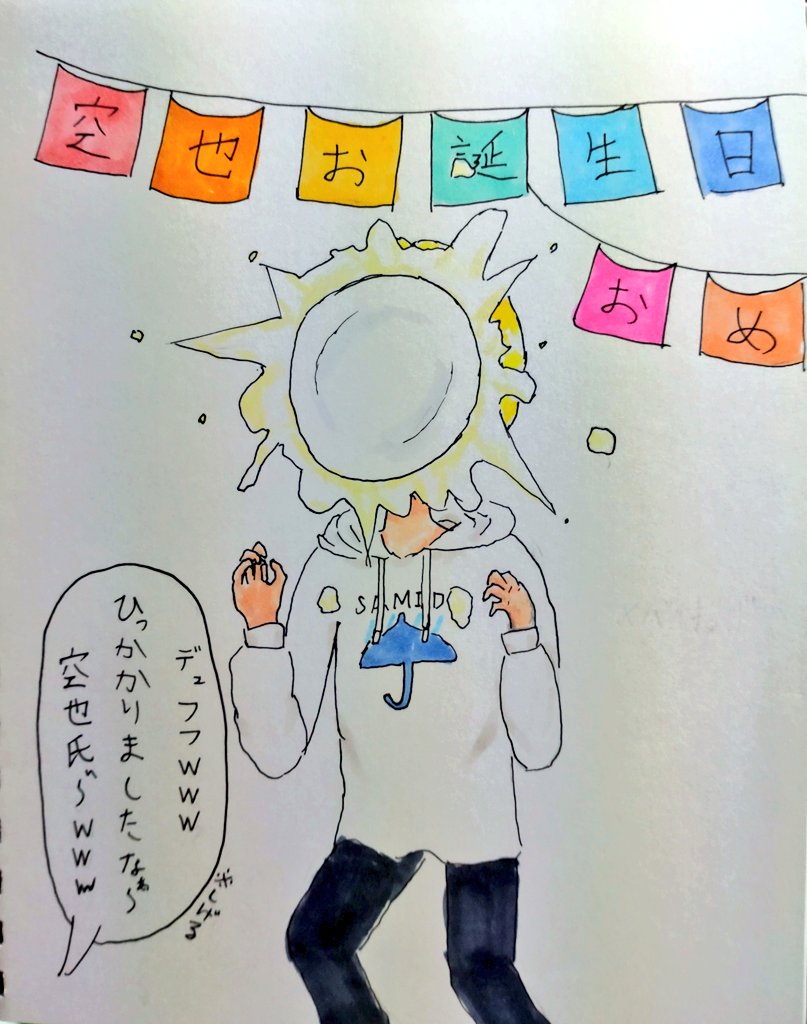 空也お誕生日
おめ
SAMID
デュフフwww
ひっかかりましたなぁ〜
空也氏〜www
※しげる